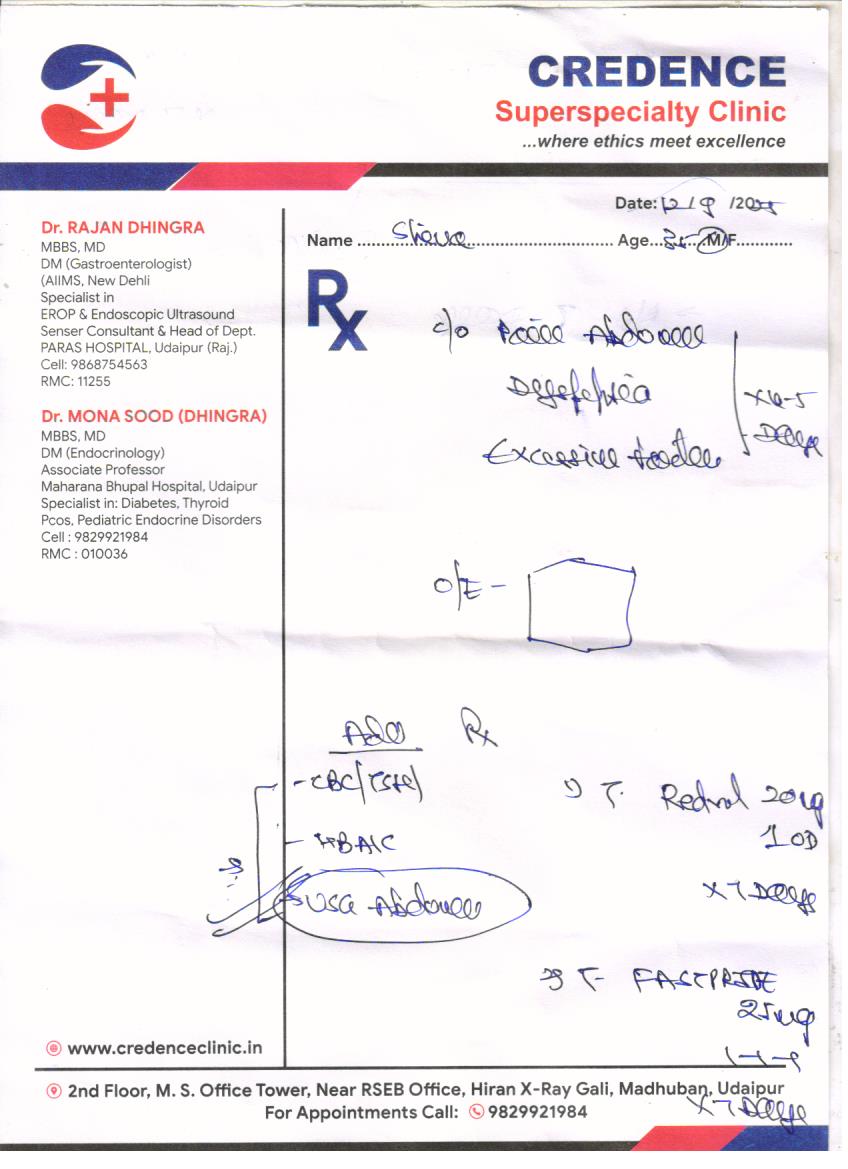 CREDENCE
Superspecialty Clinic
...where ethics meet excellence
Date: 12/9/2025
Name ........ Age... 35 M/F............
Dr. RAJAN DHINGRA
MBBS, MD
DM (Gastroenterologist)
(AIIMS, New Dehli
Specialist in
EROP & Endoscopic Ultrasound
Senser Consultant & Head of Dept.
PARAS HOSPITAL, Udaipur (Raj.)
Cell: 9868754563
RMC: 11255
Dr. MONA SOOD (DHINGRA)
MBBS, MD
DM (Endocrinology)
Associate Professor
Maharana Bhupal Hospital, Udaipur
Specialist in: Diabetes, Thyroid
Pcos, Pediatric Endocrine Disorders
Cell : 9829921984
RMC : 010036
Rx
c/o Pain Abdomen
x 4-5
Days
O/E -
Rx
- CBC
- HBA1C
USG Abdomen
1) T. 20mg
1 OD
x 7 Days
2) T- 25mg
x 7 Days
www.credenceclinic.in
2nd Floor, M. S. Office Tower, Near RSEB Office, Hiran X-Ray Gali, Madhuban, Udaipur
For Appointments Call: 9829921984